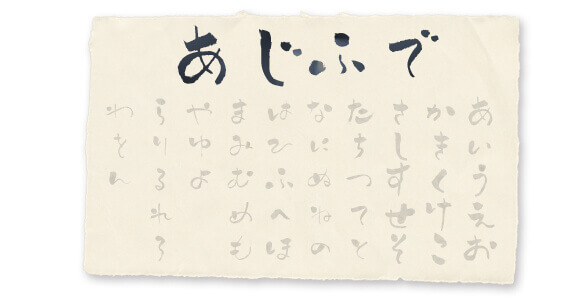 あじふで
あいうえお
かきくけこ
さしすせそ
たちつてと
なにぬねの
はひふへほ
まみむめも
やゆよ
らりるれろ
わをん